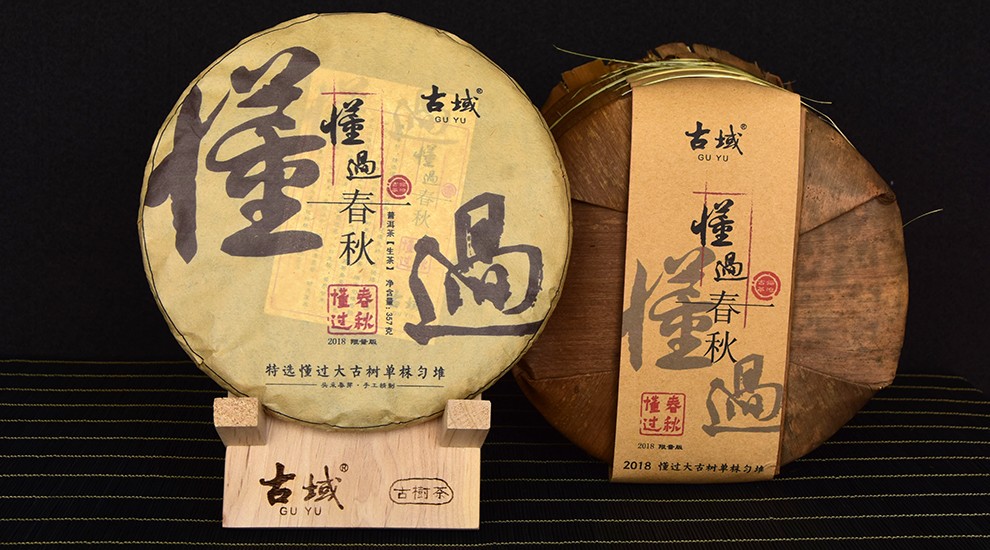 懂
過
古域®
GU YU
懂過春秋
普洱茶【生茶】 净含量:357克
春秋
懂过
2018 限量版
特选懂过大古树单株匀堆
古域®
GU YU
古樹茶
古域®
GU YU
懂過春秋
懂
過
春秋
懂过
2018 限量版
2018 懂过大古树单株匀堆